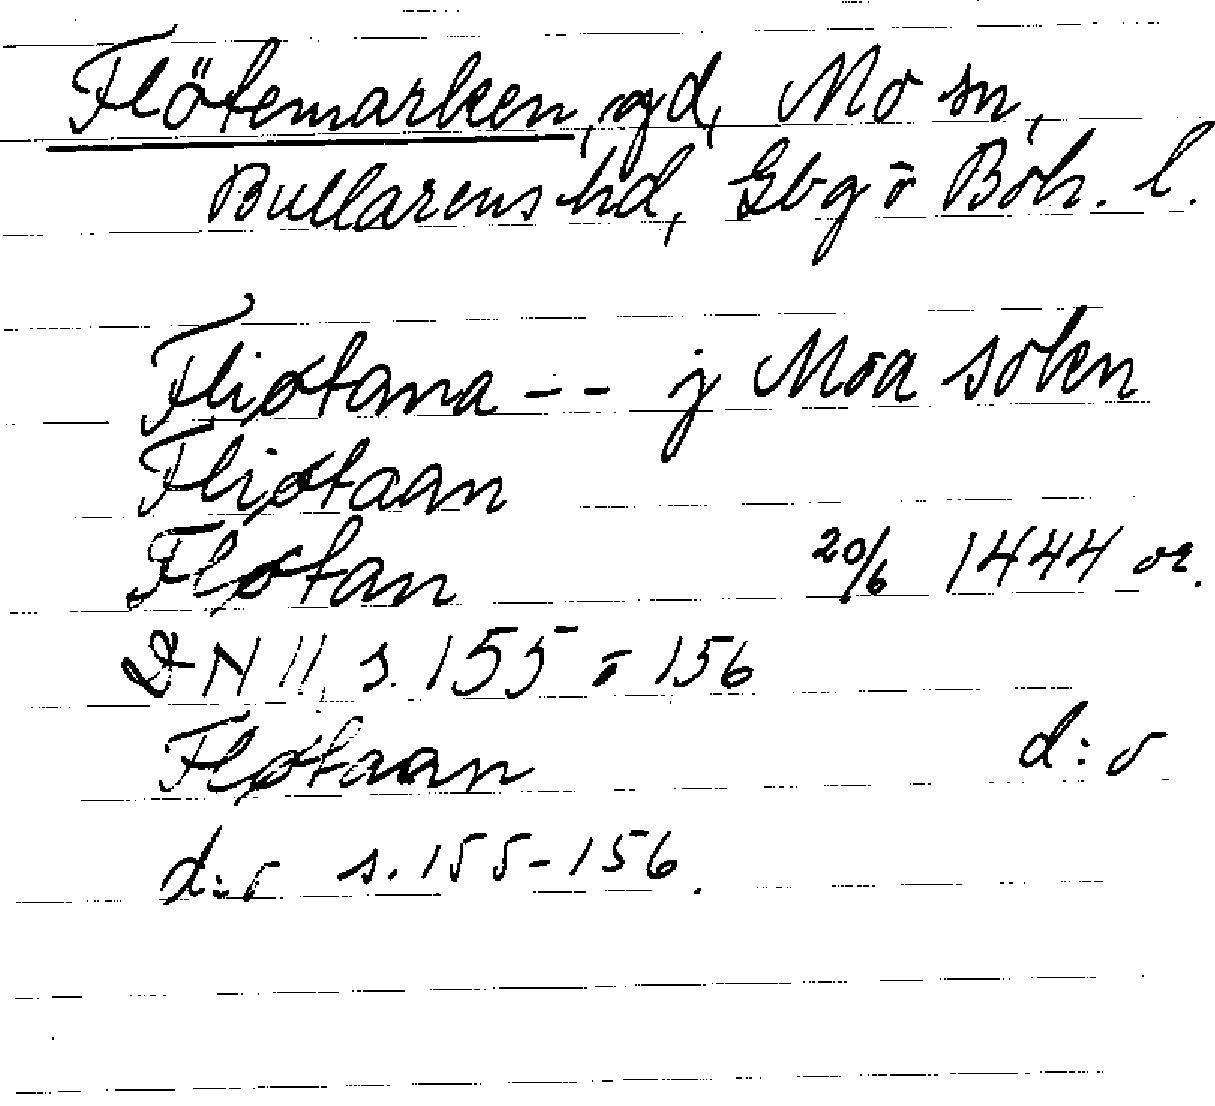 Flötemarken, gd, Mo sn,
Bullarens hd, Gbg o Boh. l.
Fliøtana -- j Moa soken
Fliøtaan
Fløtan 20/6 1444 or.
DN II, s. 155 o 156
Fløtaan d:o
d:o s. 155-156.